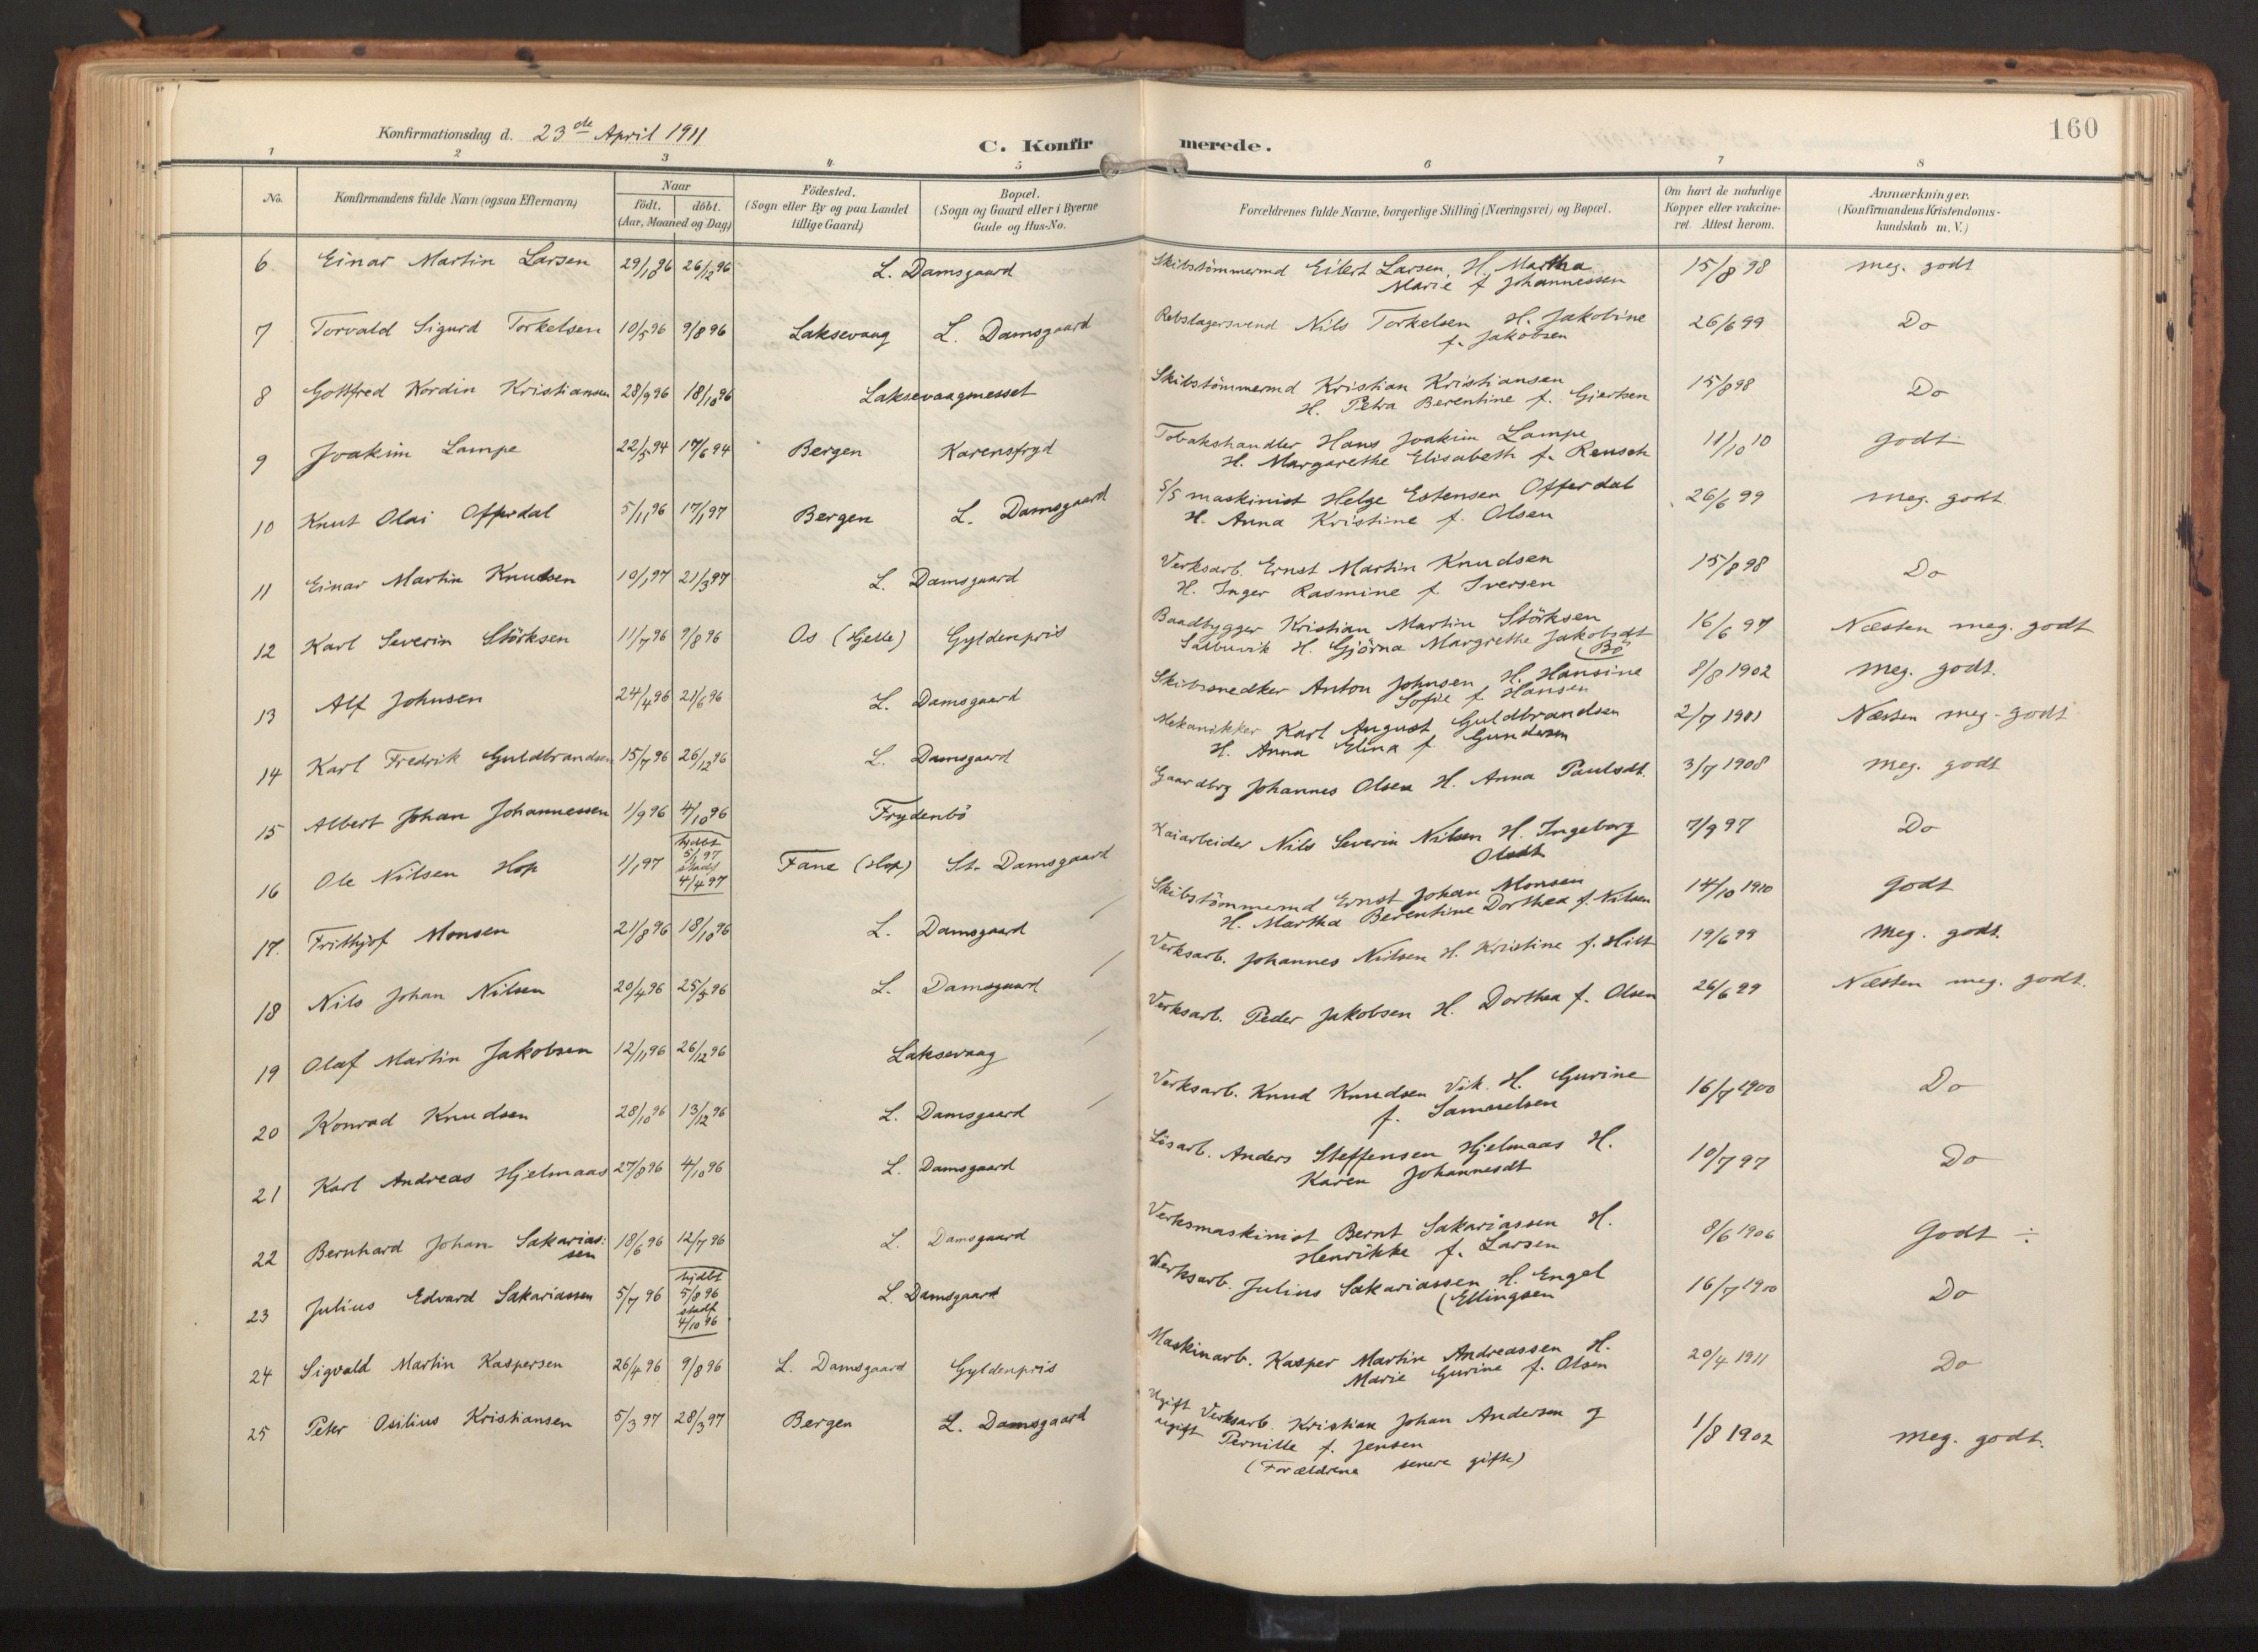 160
Konfirmationsdag d. 23de April 1911
C. Konfirmerede.
1 2 3 4 5 6 7 8
No. Konfirmandens fulde Navn (ogsaa Efternavn)
Naar födt. döbt. (Aar, Maaned og Dag)
Födested. (Sogn eller By og paa Landet tillige Gaard)
Bopæl. (Sogn og Gaard eller i Byerne Gade og Hus-No.
Forældrenes fulde Navne, borgerlige Stilling (Næringsvei) og Bopæl.
Om havt de naturlige Kopper eller vakcineret. Attest herom.
Anmærkninger. (Konfirmandens Kristendomskundskab m. V.)
6 Einar Martin Larsen 29/10 96 26/12 96 L. Damsgaard Skibstömmermd Eilert Larsen, H. Martha 15/8 98 meg. godt
Marie f Johannessen
7 Torvald Sigurd Torkelsen 10/5 96 9/8 96 Laksevaag L. Damsgaard Rebslagersvend Nils Torkelsen H. Jakobine 26/6 99 Do
f. Jakobsen
8 Gottfred Nordin Kristiansen 28/9 96 18/10 96 Laksevaagnesset Skibstömmermd Kristian Kristiansen 15/8 98 Do
H. Petra Berentine f. Giertsen
9 Joakim Lampe 22/5 94 17/6 94 Bergen Karensfryd Tobakshandler Hans Joakim Lampe 11/10 10 godt
H. Margarethe Elisabeth f. Reusch
10 Knut Olai Offerdal 5/11 96 17/1 97 Bergen L. Damsgaard S/S maskinist Helge Estensen Offerdal 26/6 99 meg. godt
H. Anna Kristine f. Olsen
11 Einar Martin Knudsen 10/1 97 21/3 97 L. Damsgaard Verksarb. Ernst Martin Knudsen 15/8 98 Do
H. Inger Rasmine f. Iversen
12 Karl Severin Störksen 11/7 96 9/8 96 Os (Gjelle) Gyldenpris Baadbygger Kristian Martin Störksen 16/6 97 Næsten meg. godt
Salbuvik H. Gjörna Margrethe Jakobsdt
(Bö
13 Alf Johnsen 24/4 96 21/6 96 L. Damsgaard Skibssnedker Anton Johnsen H. Hansine 8/8 1902 meg. godt.
Sofie f. Hansen
14 Karl Fredrik Guldbrandsen 15/7 96 26/12 96 L. Damsgaard Mekanikker Karl August Guldbrandsen 2/7 1901 Næsten meg. godt
H. Anna Elina f. Gundersen
15 Albert Johan Johannessen 1/9 96 4/10 96 Frydenbö Gaardbrg Johannes Olsen H. Anna Paulsdt. 3/7 1908 meg. godt
16 Ole Nilsen Hop 1/1 97 hjdbt 5/1 97 stadf 4/4 97 Fane (Hop) St. Damsgaard Kaiarbeider Nils Severin Nilsen H. Ingeborg 7/9 97 Do
Olsdt
17. Frithjof Monsen 21/8 96 18/10 96 L. Damsgaard Skibstömmermd Ernst Johan Monsen 14/10 1910 godt
H. Martha Berentine Dorthea f. Nilsen
18 Nils Johan Nilsen 20/4 96 25/5 96 L. Damsgaard Verksarb. Johannes Nilsen H. Kristine f. Hilt 19/6 99 meg. godt.
19 Olaf Martin Jakobsen 12/11 96 26/12 96 Laksevaag Verksarb. Peder Jakobsen H. Dorthea f. Olsen 26/6 99 Næsten meg. godt.
20 Konrad Knudsen 28/10 96 13/12 96 L. Damsgaard Verksarb. Knud Knudsen Vik. H. Gurine 16/7 1900 Do
f. Samuelsen
21 Karl Andreas Hjelmaas 27/8 96 4/10 96 L. Damsgaard Lösarb. Anders Steffensen Hjelmaas H. 10/7 97 Do
Karen Johannesdt
22 Bernhard Johan Sakariassen 18/6 96 12/7 96 L. Damsgaard Verksmaskinist Bernt Sakariassen H. 8/6 1906 Godt ÷
Henrikke f. Larsen
23 Julius Edvard Sakariassen 5/7 96 hjdbt 5/8 96 stadf 4/10 96 L. Damsgaard Verksarb. Julius Sakariassen H. Engel 16/7 1900 Do
(Ellingsen
24 Sigvald Martin Kaspersen 26/4 96 9/8 96 L. Damsgaard Gyldenpris Maskinarb. Kasper Martin Andreassen H. 20/4 1911 Do
Marie Gurine f. Olsen
25 Peter Osilius Kristiansen 5/3 97 28/3 97 Bergen L. Damsgaard Ugift Verksarb. Kristian Johan Andersen og 1/8 1902 meg. godt.
ugift Pernille f. Jensen
(Forældrene senere gifte)